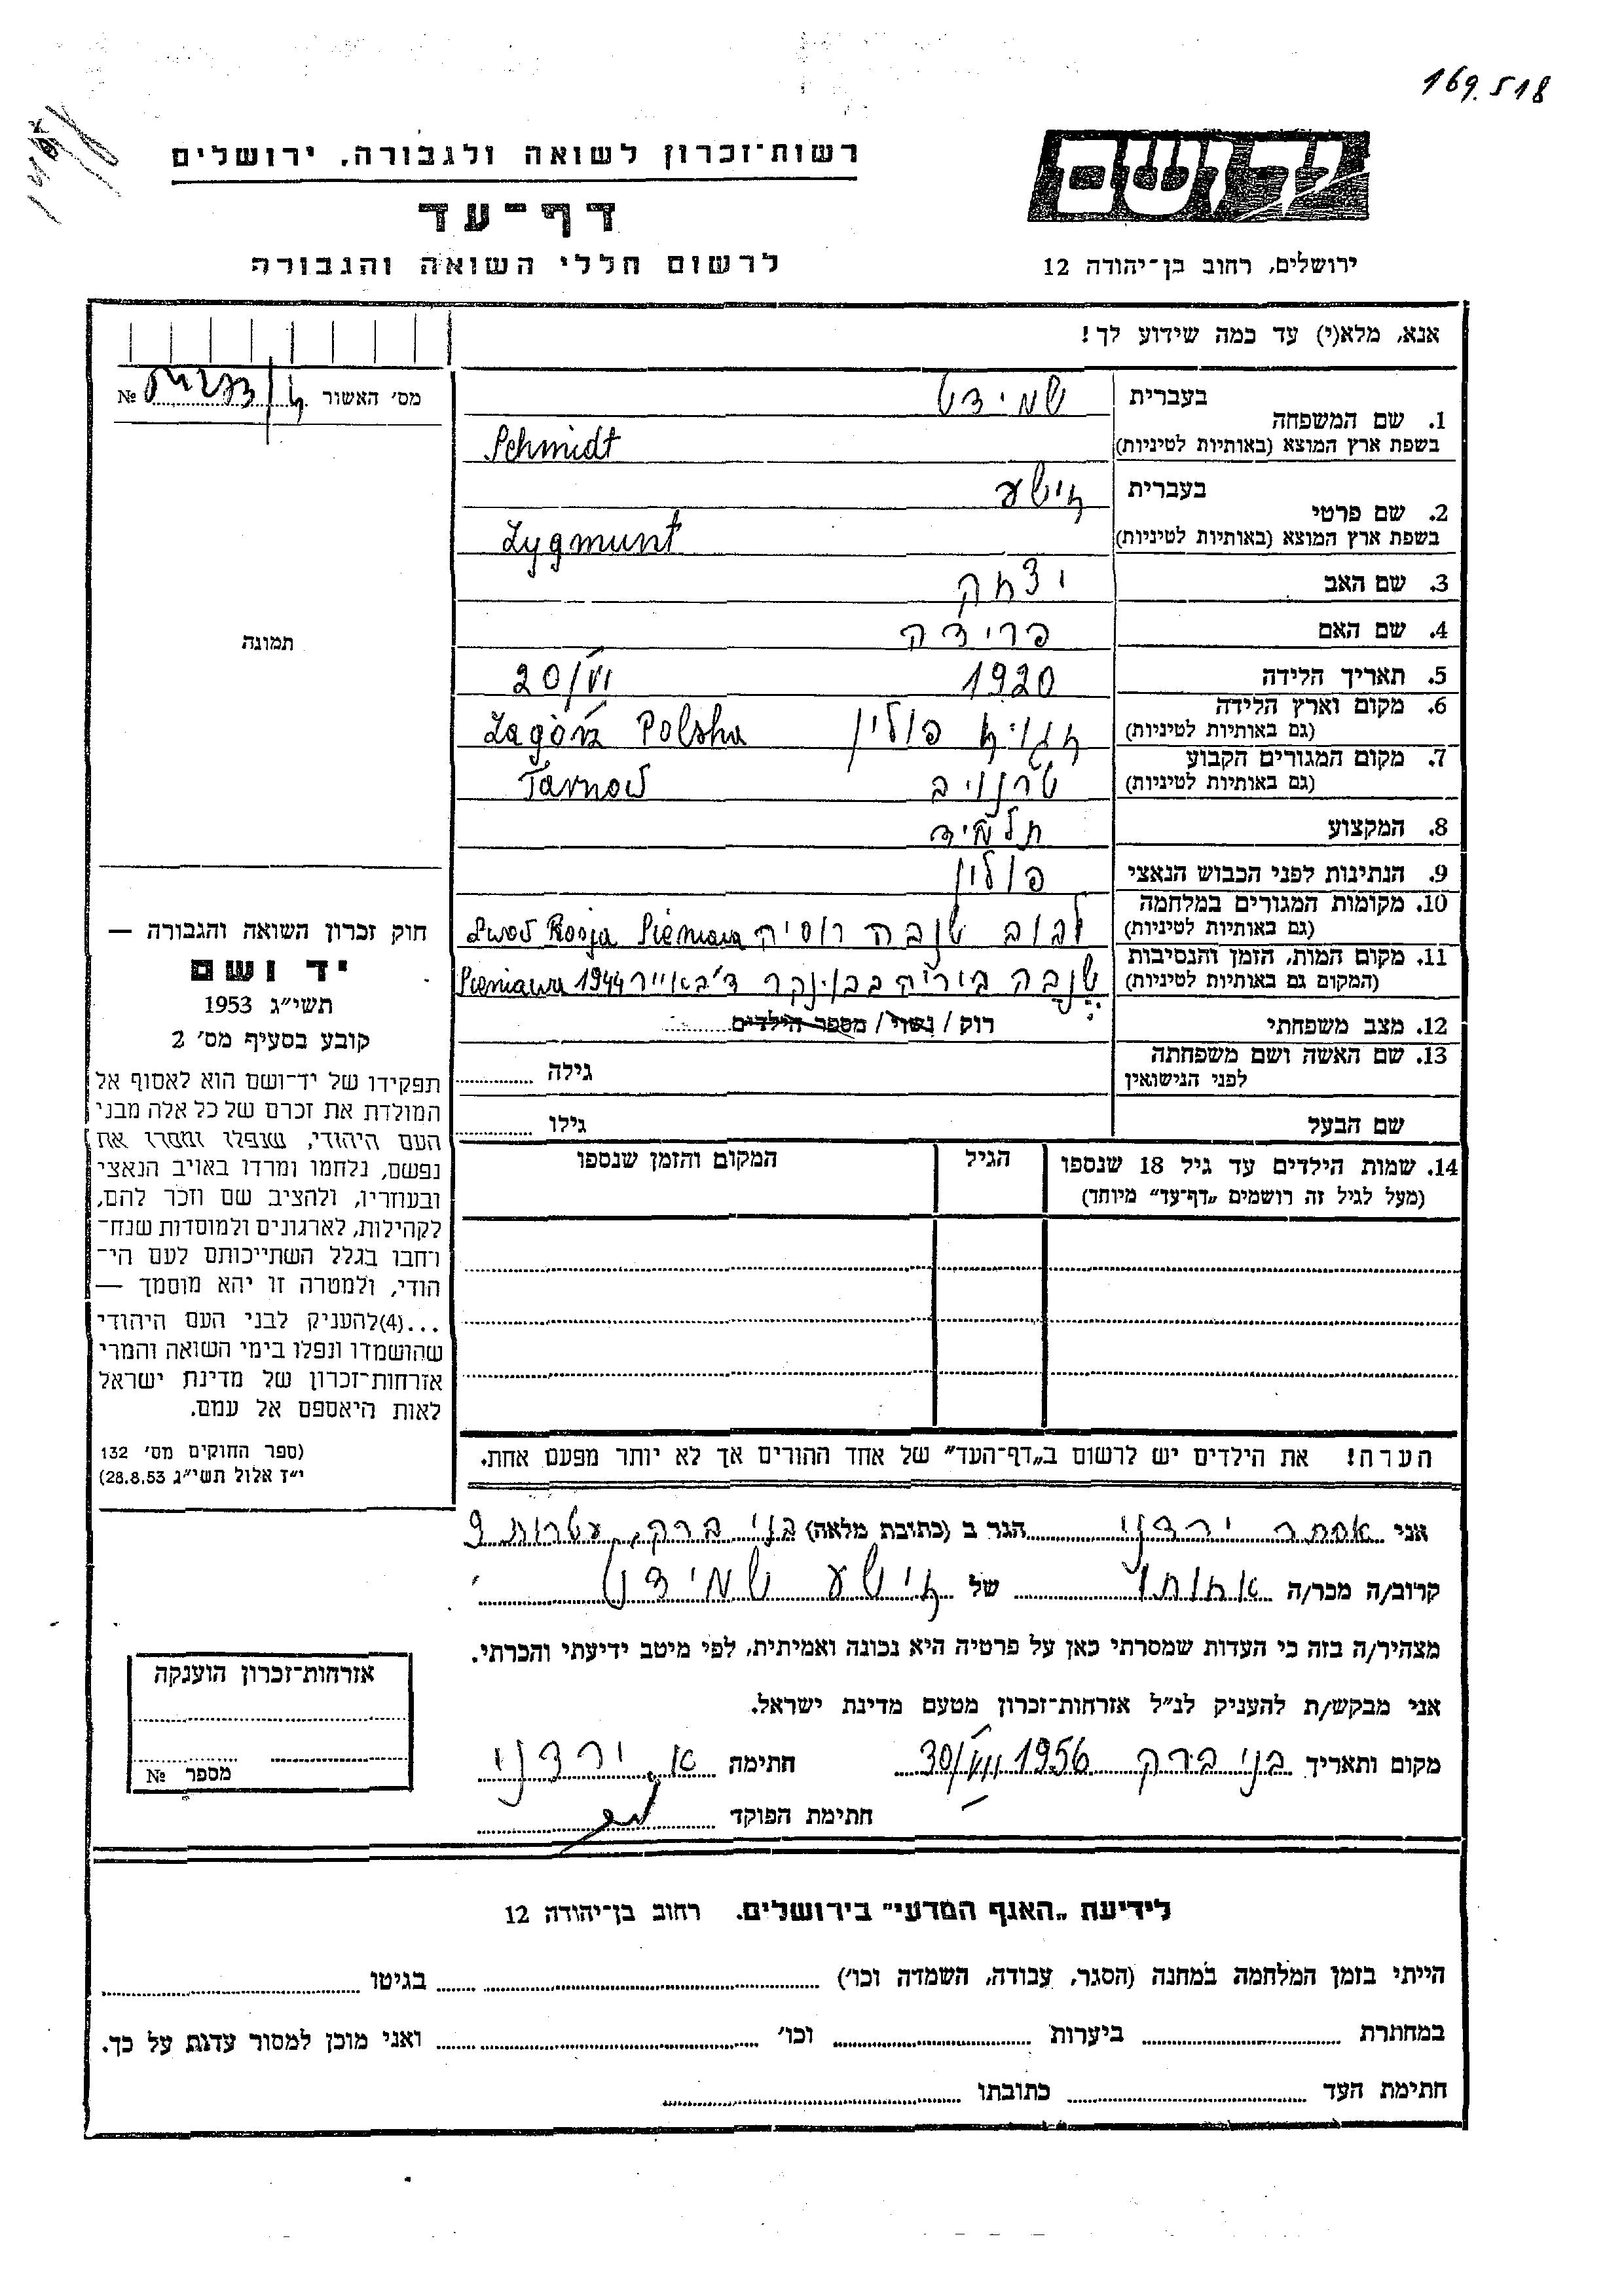 169.518
רשות־זכרון לשואה ולגבורה, ירושלים
יד ושם
דף־עד
לרשום חללי השואה והגבורה
ירושלים, רחוב בן־יהודה 12
אנא, מלא(י) עד כמה שידוע לך!
מס׳ האשור №
בעברית שמידט
1. שם המשפחה
בשפת ארץ המוצא (באותיות לטיניות) Schmidt
בעברית זישע
2. שם פרטי
בשפת ארץ המוצא (באותיות לטיניות) Zygmunt
3. שם האב יצחק
4. שם האם פרידה
5. תאריך הלידה 1920 20/VI
6. מקום וארץ הלידה
(גם באותיות לטיניות) פולין Zagórz Polska
7. מקום המגורים הקבוע
(גם באותיות לטיניות) טרנוב Tarnow
8. המקצוע תלמיד
9. הנתינות לפני הכבוש הנאצי פולין
10. מקומות המגורים במלחמה
(גם באותיות לטיניות) לבוב שנבה רוסיה Lwow Rosja Sieniawa
11. מקום המות, הזמן והנסיבות
(המקום גם באותיות לטיניות) שנבה 1944 Sieniawa
12. מצב משפחתי רווק / נשוי / מספר הילדים
13. שם האשה ושם משפחתה
לפני הנישואין גילה
שם הבעל גילו
14. שמות הילדים עד גיל 18 שנספו הגיל המקום והזמן שנספו
(מעל לגיל זה רושמים „דף־עד״ מיוחד)
הערה! את הילדים יש לרשום ב„דף־העד״ של אחד ההורים אך לא יותר מפעם אחת.
תמונה
חוק זכרון השואה והגבורה —
יד ושם
תשי״ג 1953
קובע בסעיף מס׳ 2
תפקידו של יד־ושם הוא לאסוף אל
המולדת את זכרם של כל אלה מבני
העם היהודי, שנפלו ומסרו את
נפשם, נלחמו ומרדו באויב הנאצי
ובעוזריו, ולהציב שם וזכר להם,
לקהילות, לארגונים ולמוסדות שנח־
רחבו בגלל השתייכותם לעם הי־
הודי, ולמטרה זו יהא מוסמך —
...(4)להעניק לבני העם היהודי
שהושמדו ונפלו בימי השואה והמרי
אזרחות־זכרון של מדינת ישראל
לאות היאספם אל עמם.
(ספר החוקים מס׳ 132
י״ז אלול תשי״ג 28.8.53)
אני אסתר ירדני הגר ב (כתובת מלאה) בני ברק, עטרות 9
קרוב/ה מכר/ה אחותו של זישע שמידט
מצהיר/ה בזה כי העדות שמסרתי כאן על פרטיה היא נכונה ואמיתית, לפי מיטב ידיעתי והכרתי.
אני מבקש/ת להעניק לנ״ל אזרחות־זכרון מטעם מדינת ישראל.
מקום ותאריך בני ברק 30/VII 1956 חתימה א. ירדני
חתימת הפוקד
אזרחות־זכרון הוענקה
מספר №
לידיעת „האגף המדעי״ בירושלים. רחוב בן־יהודה 12
הייתי בזמן המלחמה במחנה (הסגר, עבודה, השמדה וכו׳) בגיטו
במחתרת ביערות וכו׳ ואני מוכן למסור עדות על כך.
חתימת העד כתובתו